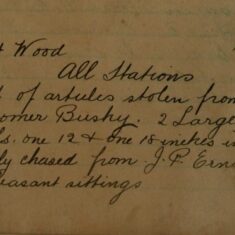 & Wood
All Stations
of articles stolen from
omer Bushy. 2 Large
one 12 & one 18 inches in
ly chased from J.P. Ern
easant sittings